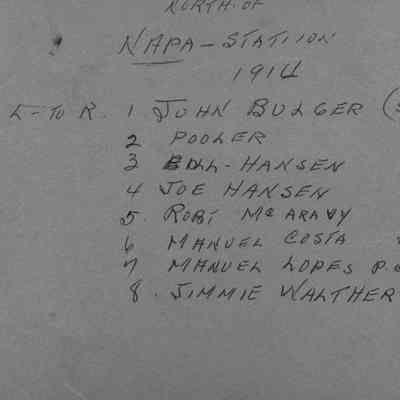 NORTH OF
NAPA-STATIION
1914
L-TO R. 1 JOHN BULGER (
2 POOLER
3 BILL-HANSEN
4 JOE HANSEN
5. ROBT
6 MANUEL COSTA
7 MANUEL LOPES P.
8. JIMMIE WALTHER